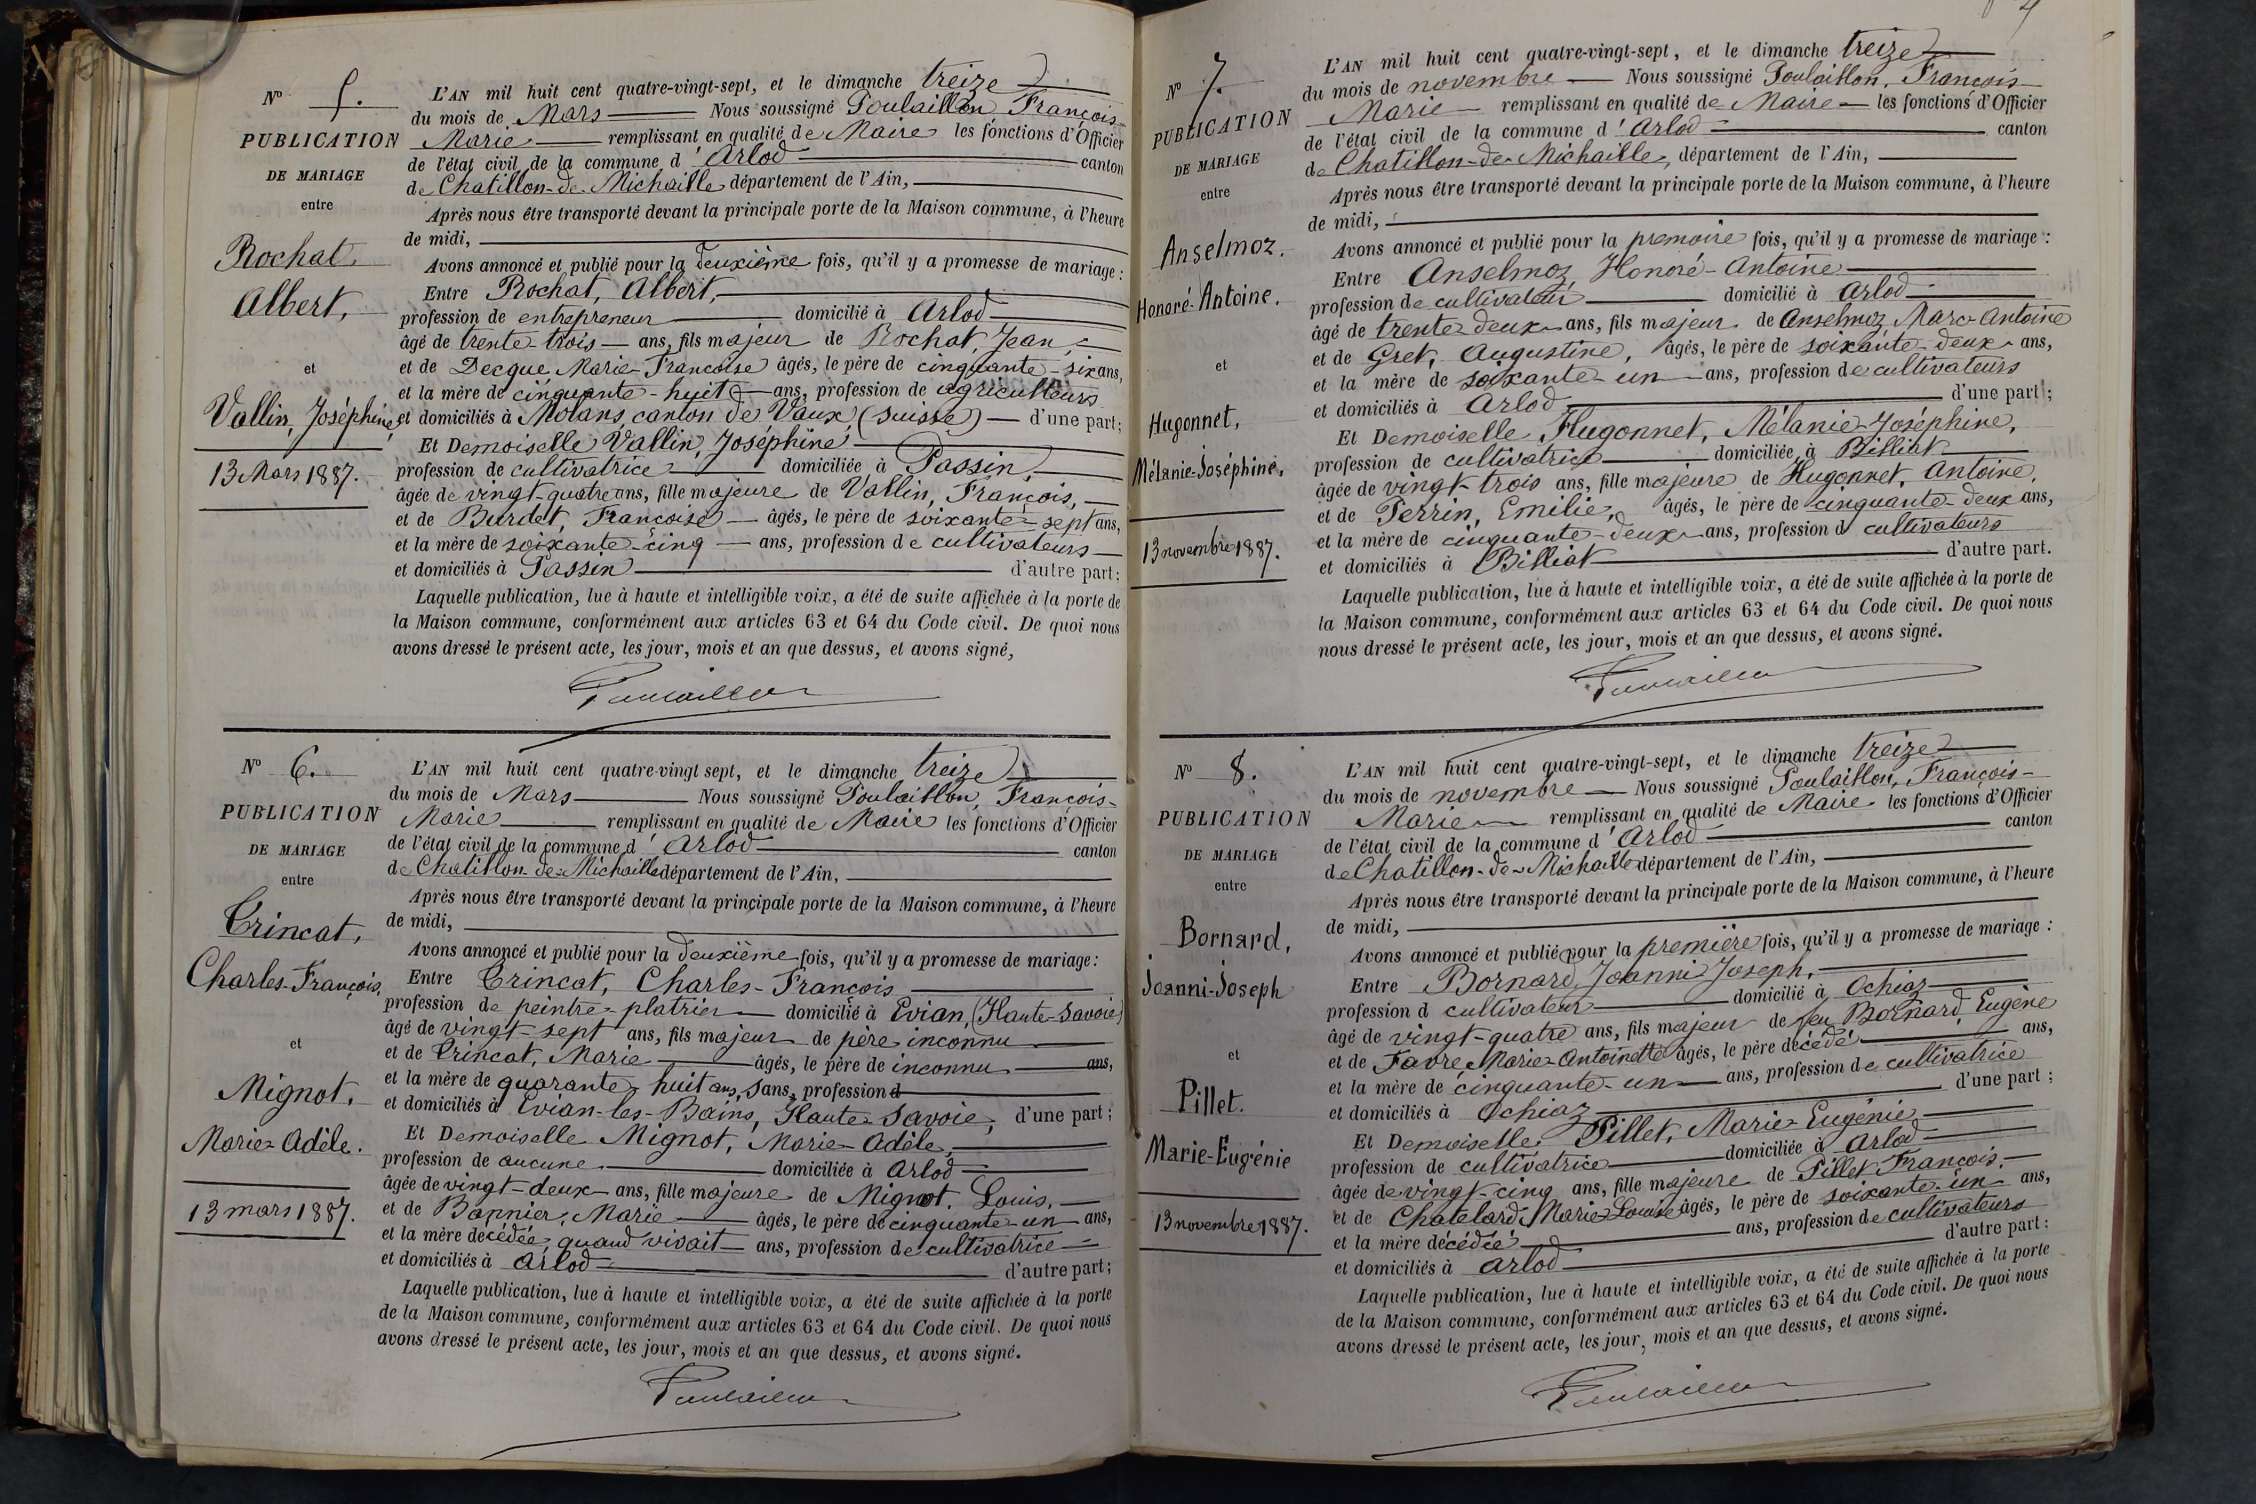 Nº 5.
PUBLICATION
DE MARIAGE
entre
Rochat,
Albert,
et
Vallin, Joséphine,
13 Mars 1887.
L'AN mil huit cent quatre-vingt-sept, et le dimanche treize
du mois de Mars Nous soussigné Poulaillon, François-
Marie remplissant en qualité de Maire les fonctions d'Officier
de l'état civil de la commune d'Arlod canton
de Chatillon-de-Michaille département de l'Ain,
Après nous être transporté devant la principale porte de la Maison commune, à l'heure
de midi,
Avons annoncé et publié pour la deuxième fois, qu'il y a promesse de mariage:
Entre Rochat, Albert,
profession de entrepreneur domicilié à Arlod
âgé de trente-trois ans, fils majeur de Rochat, Jean,
et de Decque Marie-Francoise âgés, le père de cinquante-six ans,
et la mère de cinquante-huit ans, profession de agriculteurs
et domiciliés à Molans, canton de Vaux, (suisse) d'une part;
Et Demoiselle Vallin, Joséphine
profession de cultivatrice domiciliée à Passin,
âgée de vingt-quatre ans, fille majeure de Vallin, François,
et de Burdet, Françoise âgés, le père de soixante-sept ans,
et la mère de soixante-cinq ans, profession de cultivateurs
et domiciliés à Passin d'autre part:
Laquelle publication, lue à haute et intelligible voix, a été de suite affichée à la porte de
la Maison commune, conformément aux articles 63 et 64 du Code civil. De quoi nous
avons dressé le présent acte, les jour, mois et an que dessus, et avons signé,
Poulaillon
Nº 6.
PUBLICATION
DE MARIAGE
entre
Trincat,
Charles-François,
et
Mignot,
Marie-Adèle.
13 mars 1887.
L'AN mil huit cent quatre-vingt sept, et le dimanche treize
du mois de Mars Nous soussigné Poulaillon, François-
Marie remplissant en qualité de Maire les fonctions d'Officier
de l'état civil de la commune d'Arlod canton
de Chatillon-de-Michaille département de l'Ain,
Après nous être transporté devant la principale porte de la Maison commune, à l'heure
de midi,
Avons annoncé et publié pour la deuxième fois, qu'il y a promesse de mariage:
Entre Trincat, Charles-François
profession de peintre-platrier domicilié à Evian, (Haute-Savoie)
âgé de vingt-sept ans, fils majeur de père inconnu
et de Trincat, Marie âgés, le père de inconnu ans,
et la mère de quarante-huit ans, sans, profession d
et domiciliés à Evian-les-Bains, Haute-Savoie, d'une part;
Et Demoiselle Mignot, Marie-Adèle,
profession de aucune domiciliée à Arlod
âgée de vingt-deux ans, fille majeure de Mignot, Louis,
et de Bonnier, Marie âgés, le père de cinquante-un ans,
et la mère décédée, quand vivait ans, profession de cultivatrice
et domiciliés à Arlod d'autre part;
Laquelle publication, lue à haute et intelligible voix, a été de suite affichée à la porte
de la Maison commune, conformément aux articles 63 et 64 du Code civil. De quoi nous
avons dressé le présent acte, les jour, mois et an que dessus, et avons signé.
Poulaillon
4
Nº 7.
PUBLICATION
DE MARIAGE
entre
Anselmoz.
Honoré-Antoine.
et
Hugonnet,
Mélanie-Joséphine,
13 novembre 1887.
L'AN mil huit cent quatre-vingt-sept, et le dimanche treize
du mois de novembre Nous soussigné Poulaillon, François-
Marie remplissant en qualité de Maire les fonctions d'Officier
de l'état civil de la commune d'Arlod canton
de Chatillon-de-Michaille, département de l'Ain,
Après nous être transporté devant la principale porte de la Maison commune, à l'heure
de midi,
Avons annoncé et publié pour la premoire fois, qu'il y a promesse de mariage:
Entre Anselmoz, Honoré-Antoine
profession de cultivateur domicilié à Arlod
âgé de trente-deux ans, fils majeur de Anselmoz, Marc-Antoine
et de Gret, Augustine, âgés, le père de soixante-deux ans,
et la mère de soixante-un ans, profession de cultivateurs
et domiciliés à Arlod d'une part;
Et Demoiselle Hugonnet, Mélanie-Joséphine,
profession de cultivatrice domiciliée à Billiat
âgée de vingt-trois ans, fille majeure de Hugonnet, Antoine,
et de Perrin, Emilie, âgés, le père de cinquante-deux ans,
et la mère de cinquante-deux ans, profession d cultivateurs
et domiciliés à Billiat d'autre part.
Laquelle publication, lue à haute et intelligible voix, a été de suite affichée à la porte de
la Maison commune, conformément aux articles 63 et 64 du Code civil. De quoi nous
nous dressé le présent acte, les jour, mois et an que dessus, et avons signé.
Poulaillon
Nº 8.
PUBLICATION
DE MARIAGE
entre
Bornard,
Joanni-Joseph
et
Pillet.
Marie-Eugénie
13 novembre 1887.
L'AN mil huit cent quatre-vingt-sept, et le dimanche treize
du mois de novembre Nous soussigné Poulaillon, François-
Marie remplissant en qualité de Maire les fonctions d'Officier
de l'état civil de la commune d'Arlod canton
de Chatillon-de-Michaille département de l'Ain,
Après nous être transporté devant la principale porte de la Maison commune, à l'heure
de midi,
Avons annoncé et publié pour la première fois, qu'il y a promesse de mariage:
Entre Bornard, Joanni Joseph,
profession d cultivateur domicilié à Ochiaz
âgé de vingt-quatre ans, fils majeur de feu Bornard Eugène
et de Favre Marie-Antoinette âgés, le père décédé ans,
et la mère de cinquante-un ans, profession de cultivatrice
et domiciliés à Ochiaz d'une part;
Et Demoiselle Pillet, Marie-Eugénie
profession de cultivatrice domiciliée à Arlod
âgée de vingt-cinq ans, fille majeure de Pillet François,
et de Chatelard, Marie-Louise âgés, le père de soixante-un ans,
et la mère décédée ans, profession de cultivateurs
et domiciliés à Arlod d'autre part:
Laquelle publication, lue à haute et intelligible voix, a été de suite affichée à la porte
de la Maison commune, conformément aux articles 63 et 64 du Code civil. De quoi nous
avons dressé le présent acte, les jour, mois et an que dessus, et avons signé.
Poulaillon